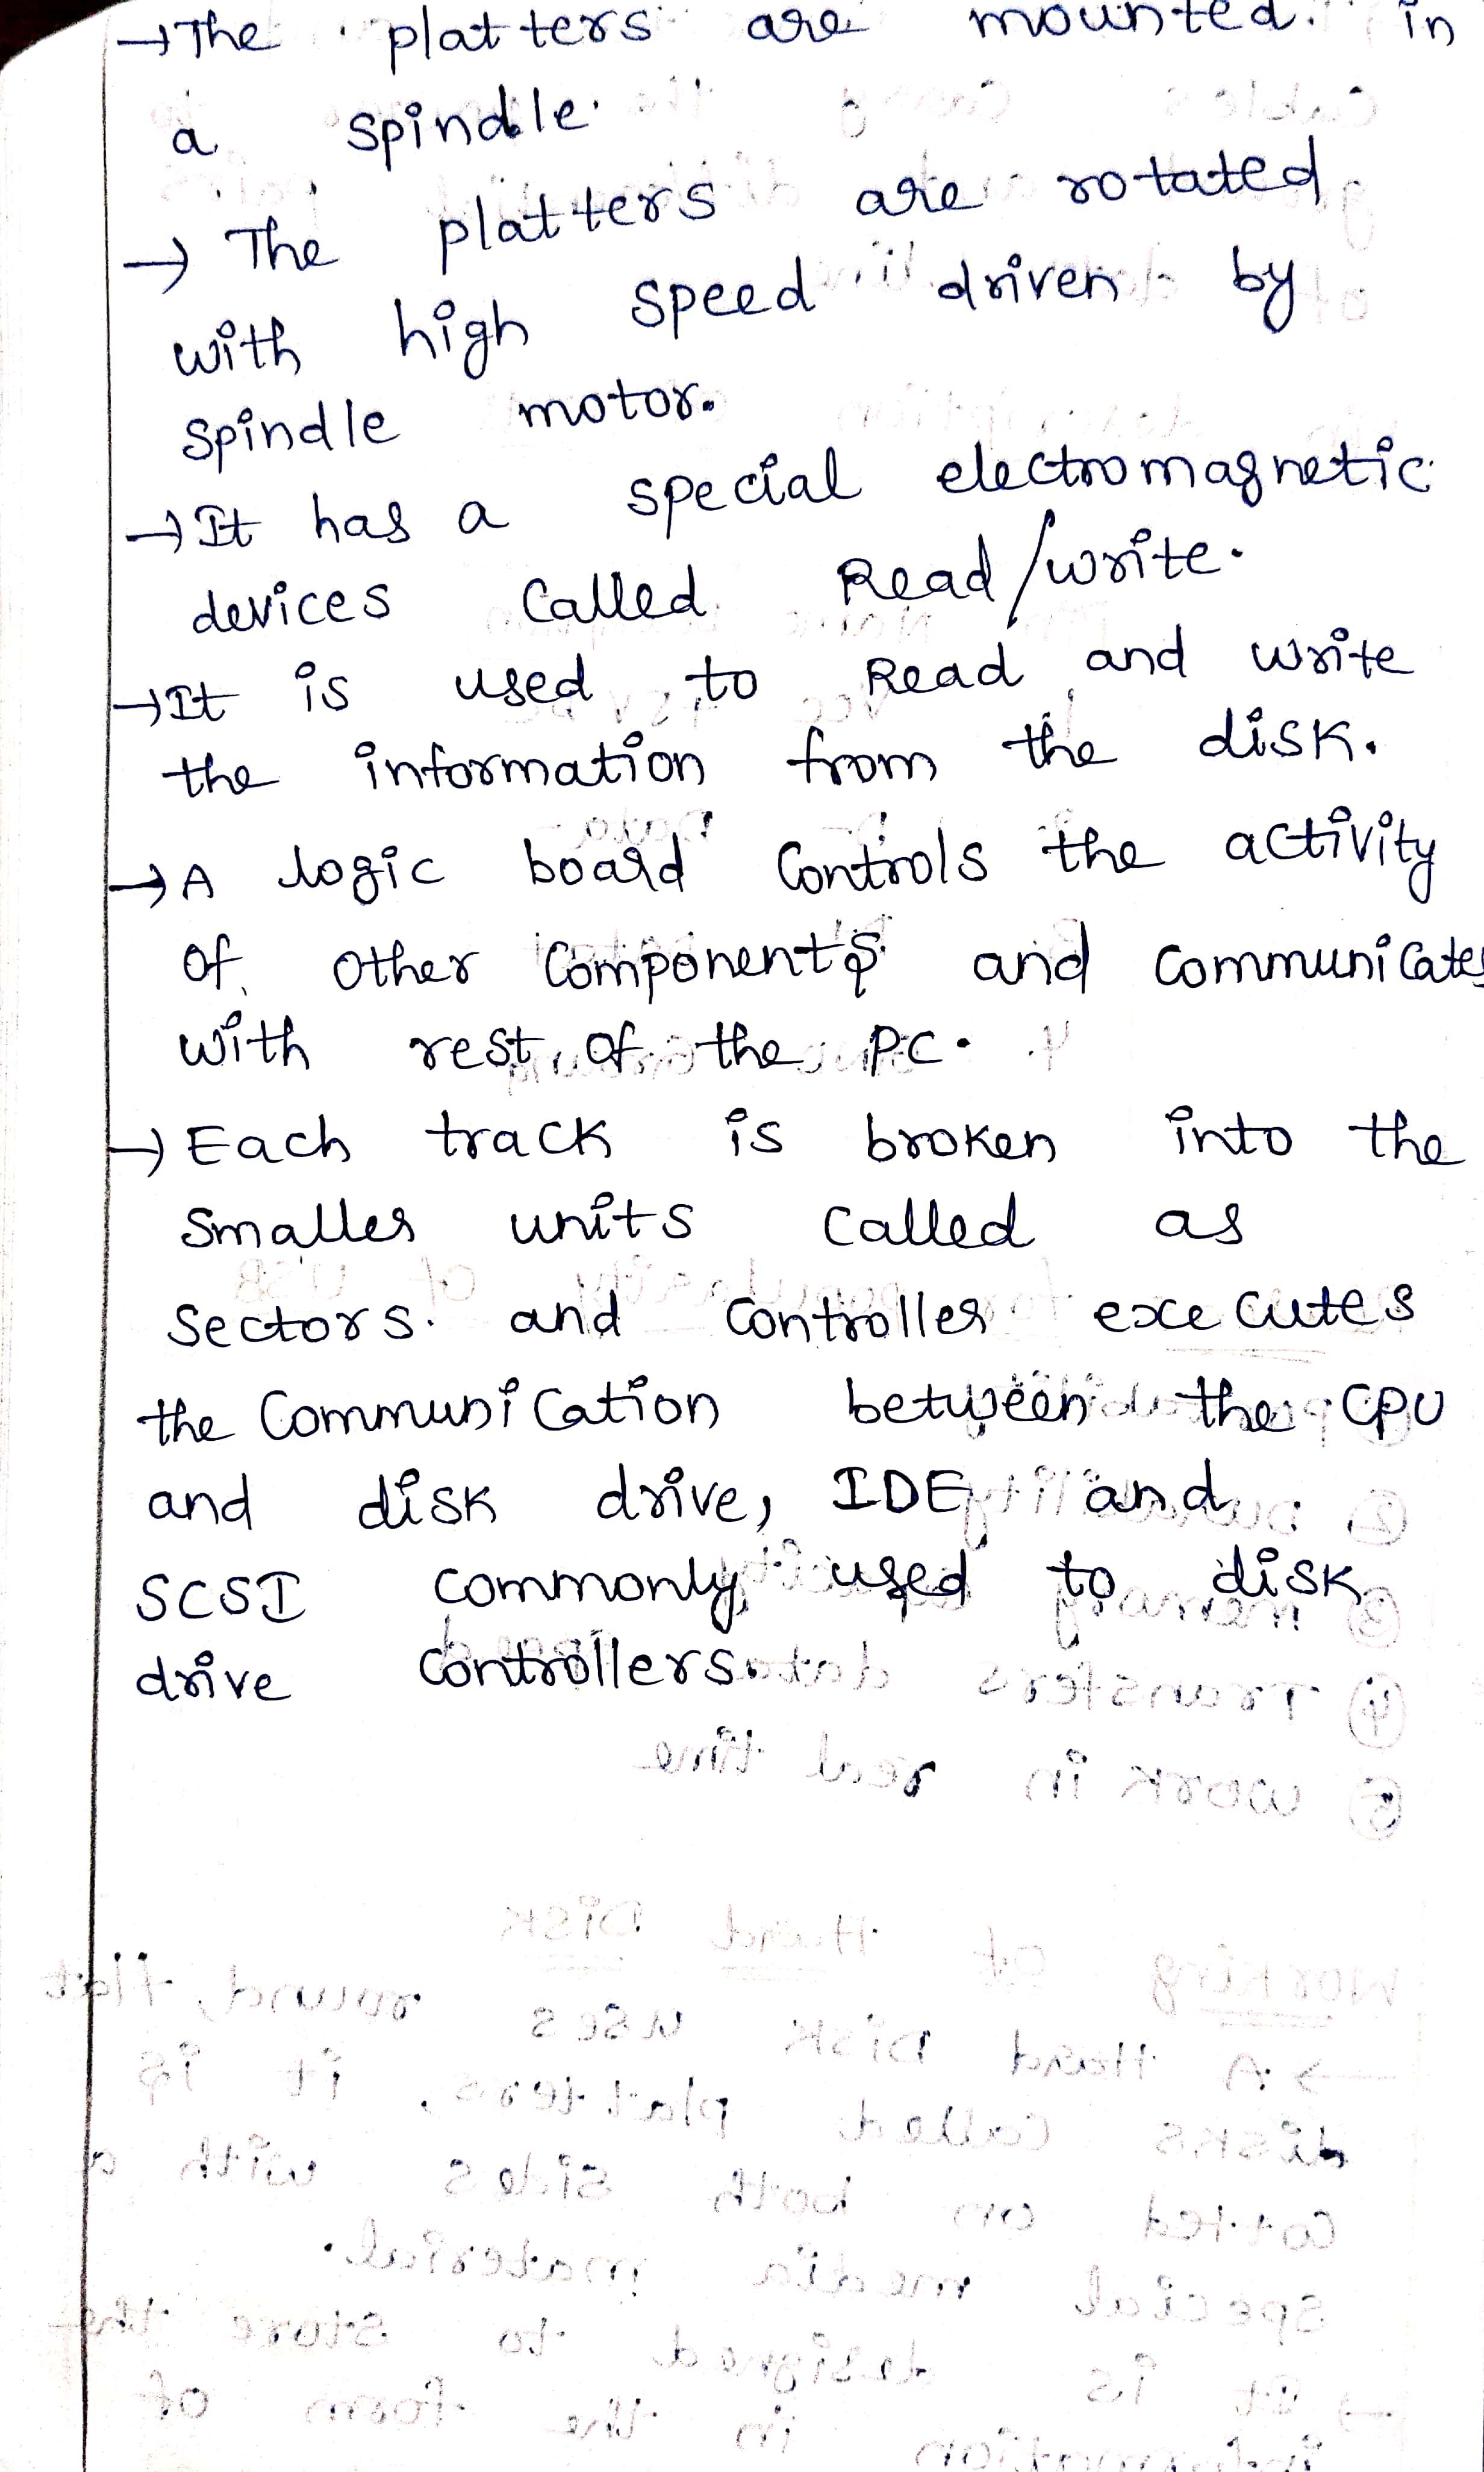 → The platters are mounted in
a spindle.
→ The platters are rotated
with high speed driven by
spindle motor.
→ It has a special electromagnetic
devices called Read/write.
→ It is used to Read and write
the information from the disk.
→ A logic board controls the activity
of other components and communicates
with rest of the PC.
→ Each track is broken into the
smaller units called as
sectors. and controller executes
the communication between the CPU
and disk drive, IDE and
SCSI commonly used to disk
drive controllers.